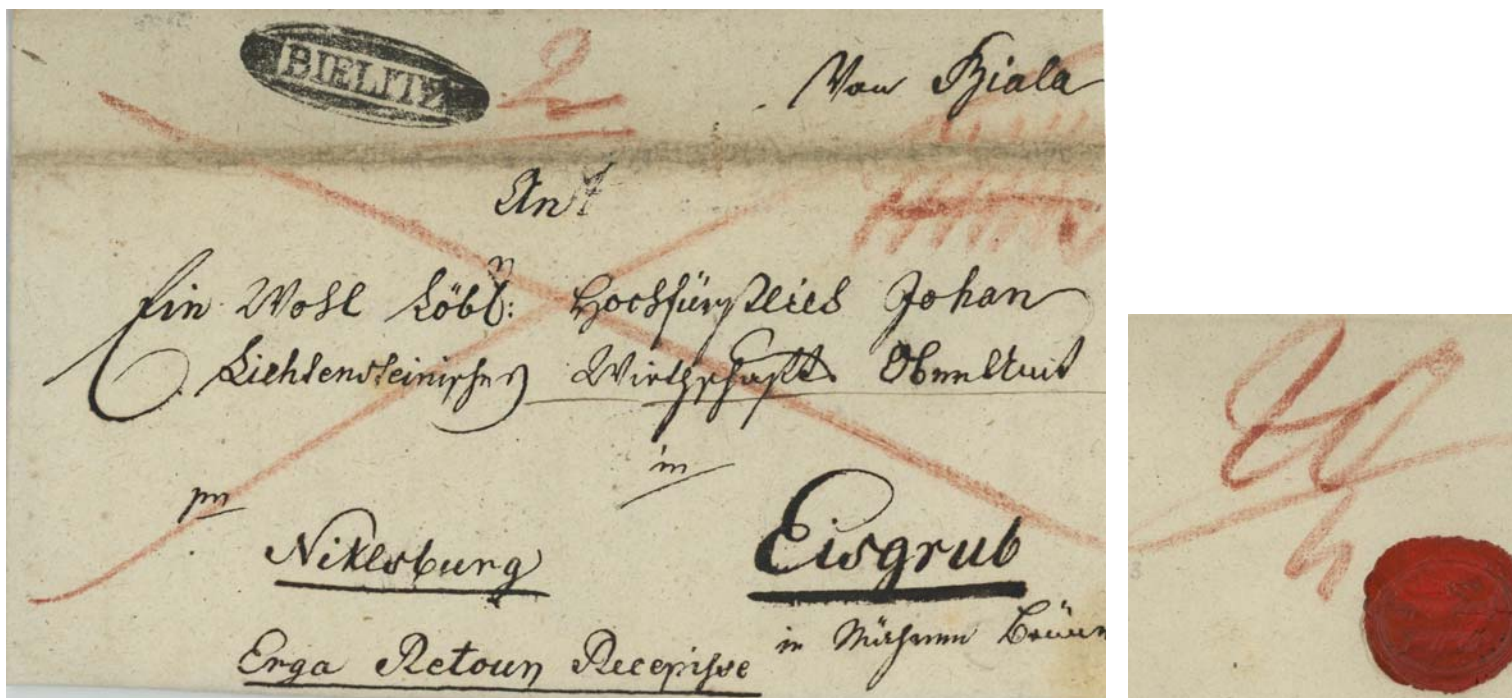 BIELITZ
2
Von Biala
An
Ein Wohl Löbl: Hochfürstlich Johan
Lichtensteinisches Wirthschafts Oberamt
in
pr
Nikelsburg
Eisgrub
in Mähren Brünn
Erga Retour Recepisse